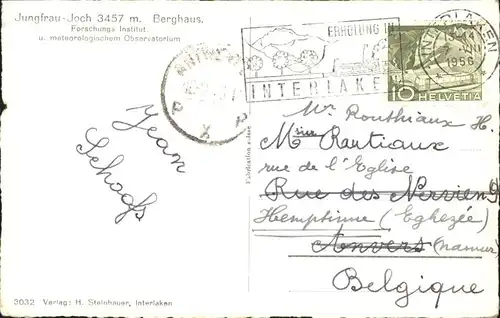 Jungfrau-Joch 3457 m. Berghaus.
Forschungs Institut.
u. meteorologischem Observatorium
ERHOLUNG IN
INTERLAKEN
INTERLAKEN
14
1956
10
HELVETIA
X
Jean
Schoofs
Mr Routhiaux H.
Monsieur Rautiaux
rue de l'Eglise
Rue des Navien 9
Hemptinne (Eghezée)
Anvers (Namur)
Belgique
3032 Verlag: H. Steinhauer, Interlaken